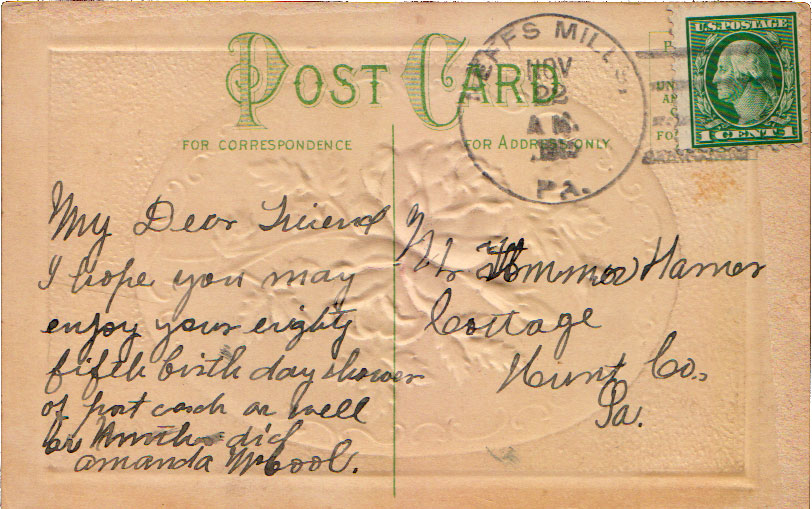 POST CARD
FOR CORRESPONDENCE
FOR ADDRESS ONLY
NEFFS MILLS,
NOV
22
A.M.
PA.
U.S. POSTAGE
1 CENT 1
My Dear Friend
I hope you may
enjoy your eighty
fifth birth day shower
of post cards as well
as did
Amanda McCool.
Mr Harner
Cottage
Hunt Co.,
Pa.